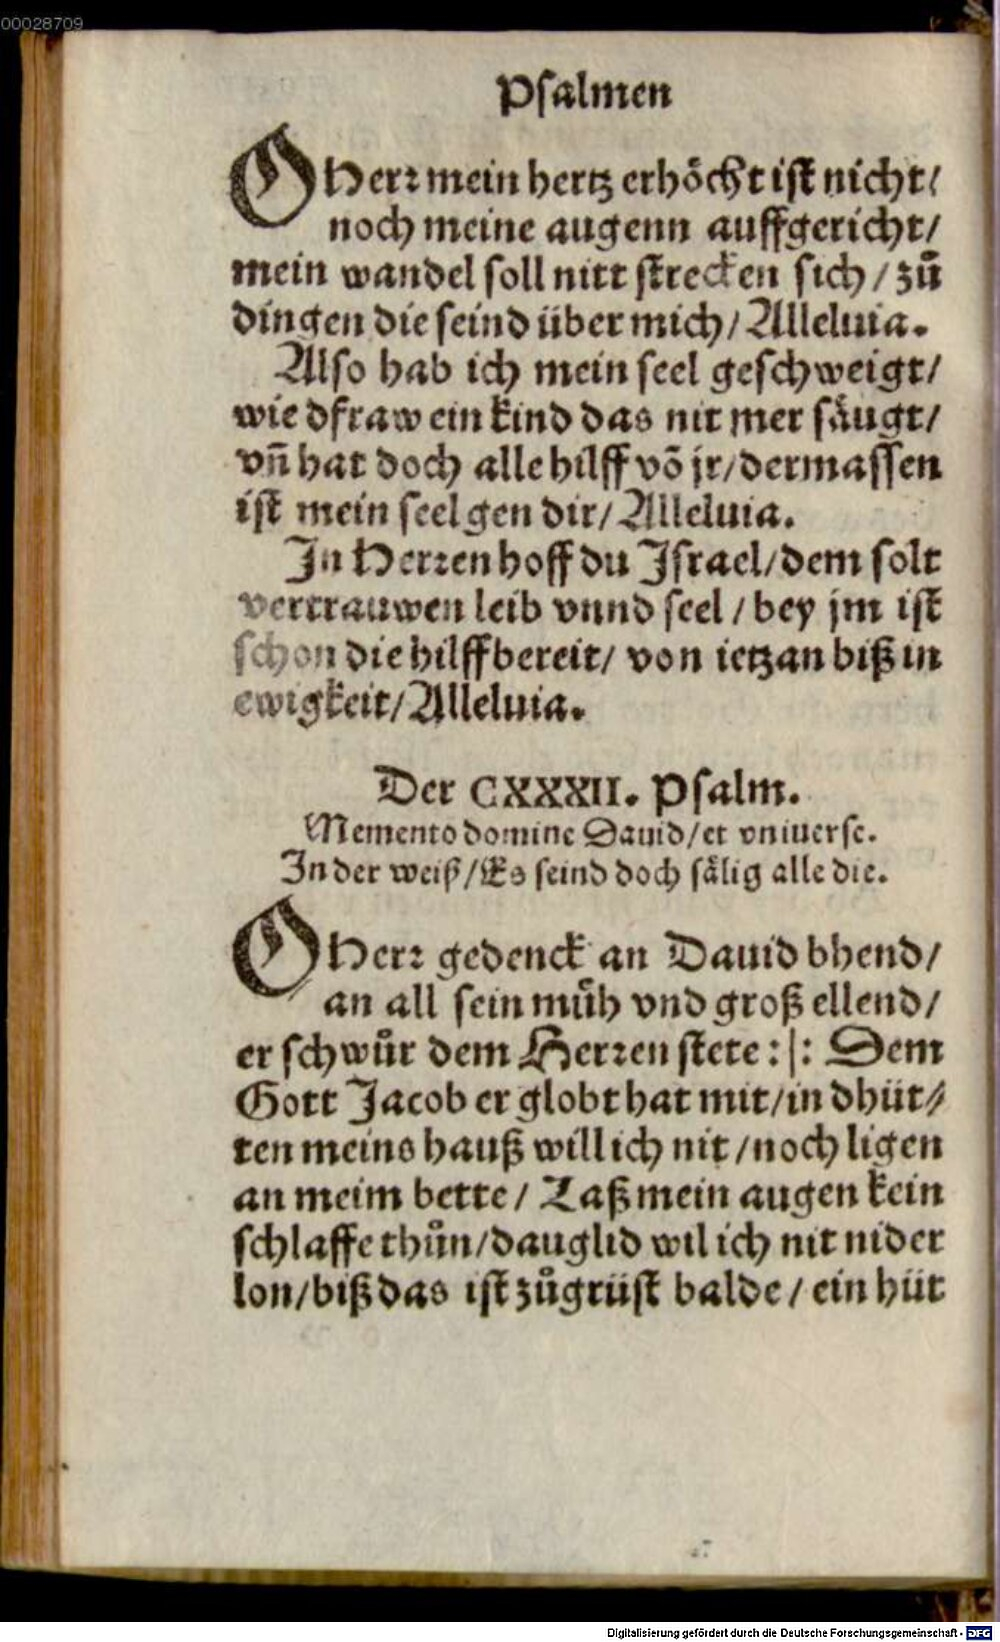 00028709
Psalmen
O Herꝛ mein hertz erhöcht ist nicht/
noch meine augenn auffgericht/
mein wandel soll nitt strecken sich / zů
dingen die seind über mich/ Alleluia.
Also hab ich mein seel geschweigt/
wie dfraw ein kind das nit mer säugt/
vñ hat doch alle hilff võ jr/ dermassen
ist mein seel gen dir/ Alleluia.
In Herꝛen hoff du Israel/ dem solt
vertrauwen leib vnnd seel / bey jm ist
schon die hilff bereit/ von ietzan biß in
ewigkeit/ Alleluia.
Der CXXXII. Psalm.
Memento domine Dauid/ et vniuerse.
In der weiß/ Es seind doch sälig alle die.
O Herꝛ gedenck an Dauid bhend/
an all sein mu̐h vnd groß ellend/
er schwůr dem Herꝛen stete :|: Dem
Gott Jacob er globt hat mit/ in dhüt⸗
ten meins hauß will ich nit / noch ligen
an meim bette / Laß mein augen kein
schlaffe thůn/ dauglid wil ich nit nider
lon/ biß das ist zůgrüst balde / ein hüt
Digitalisierung gefördert durch die Deutsche Forschungsgemeinschaft - DFG